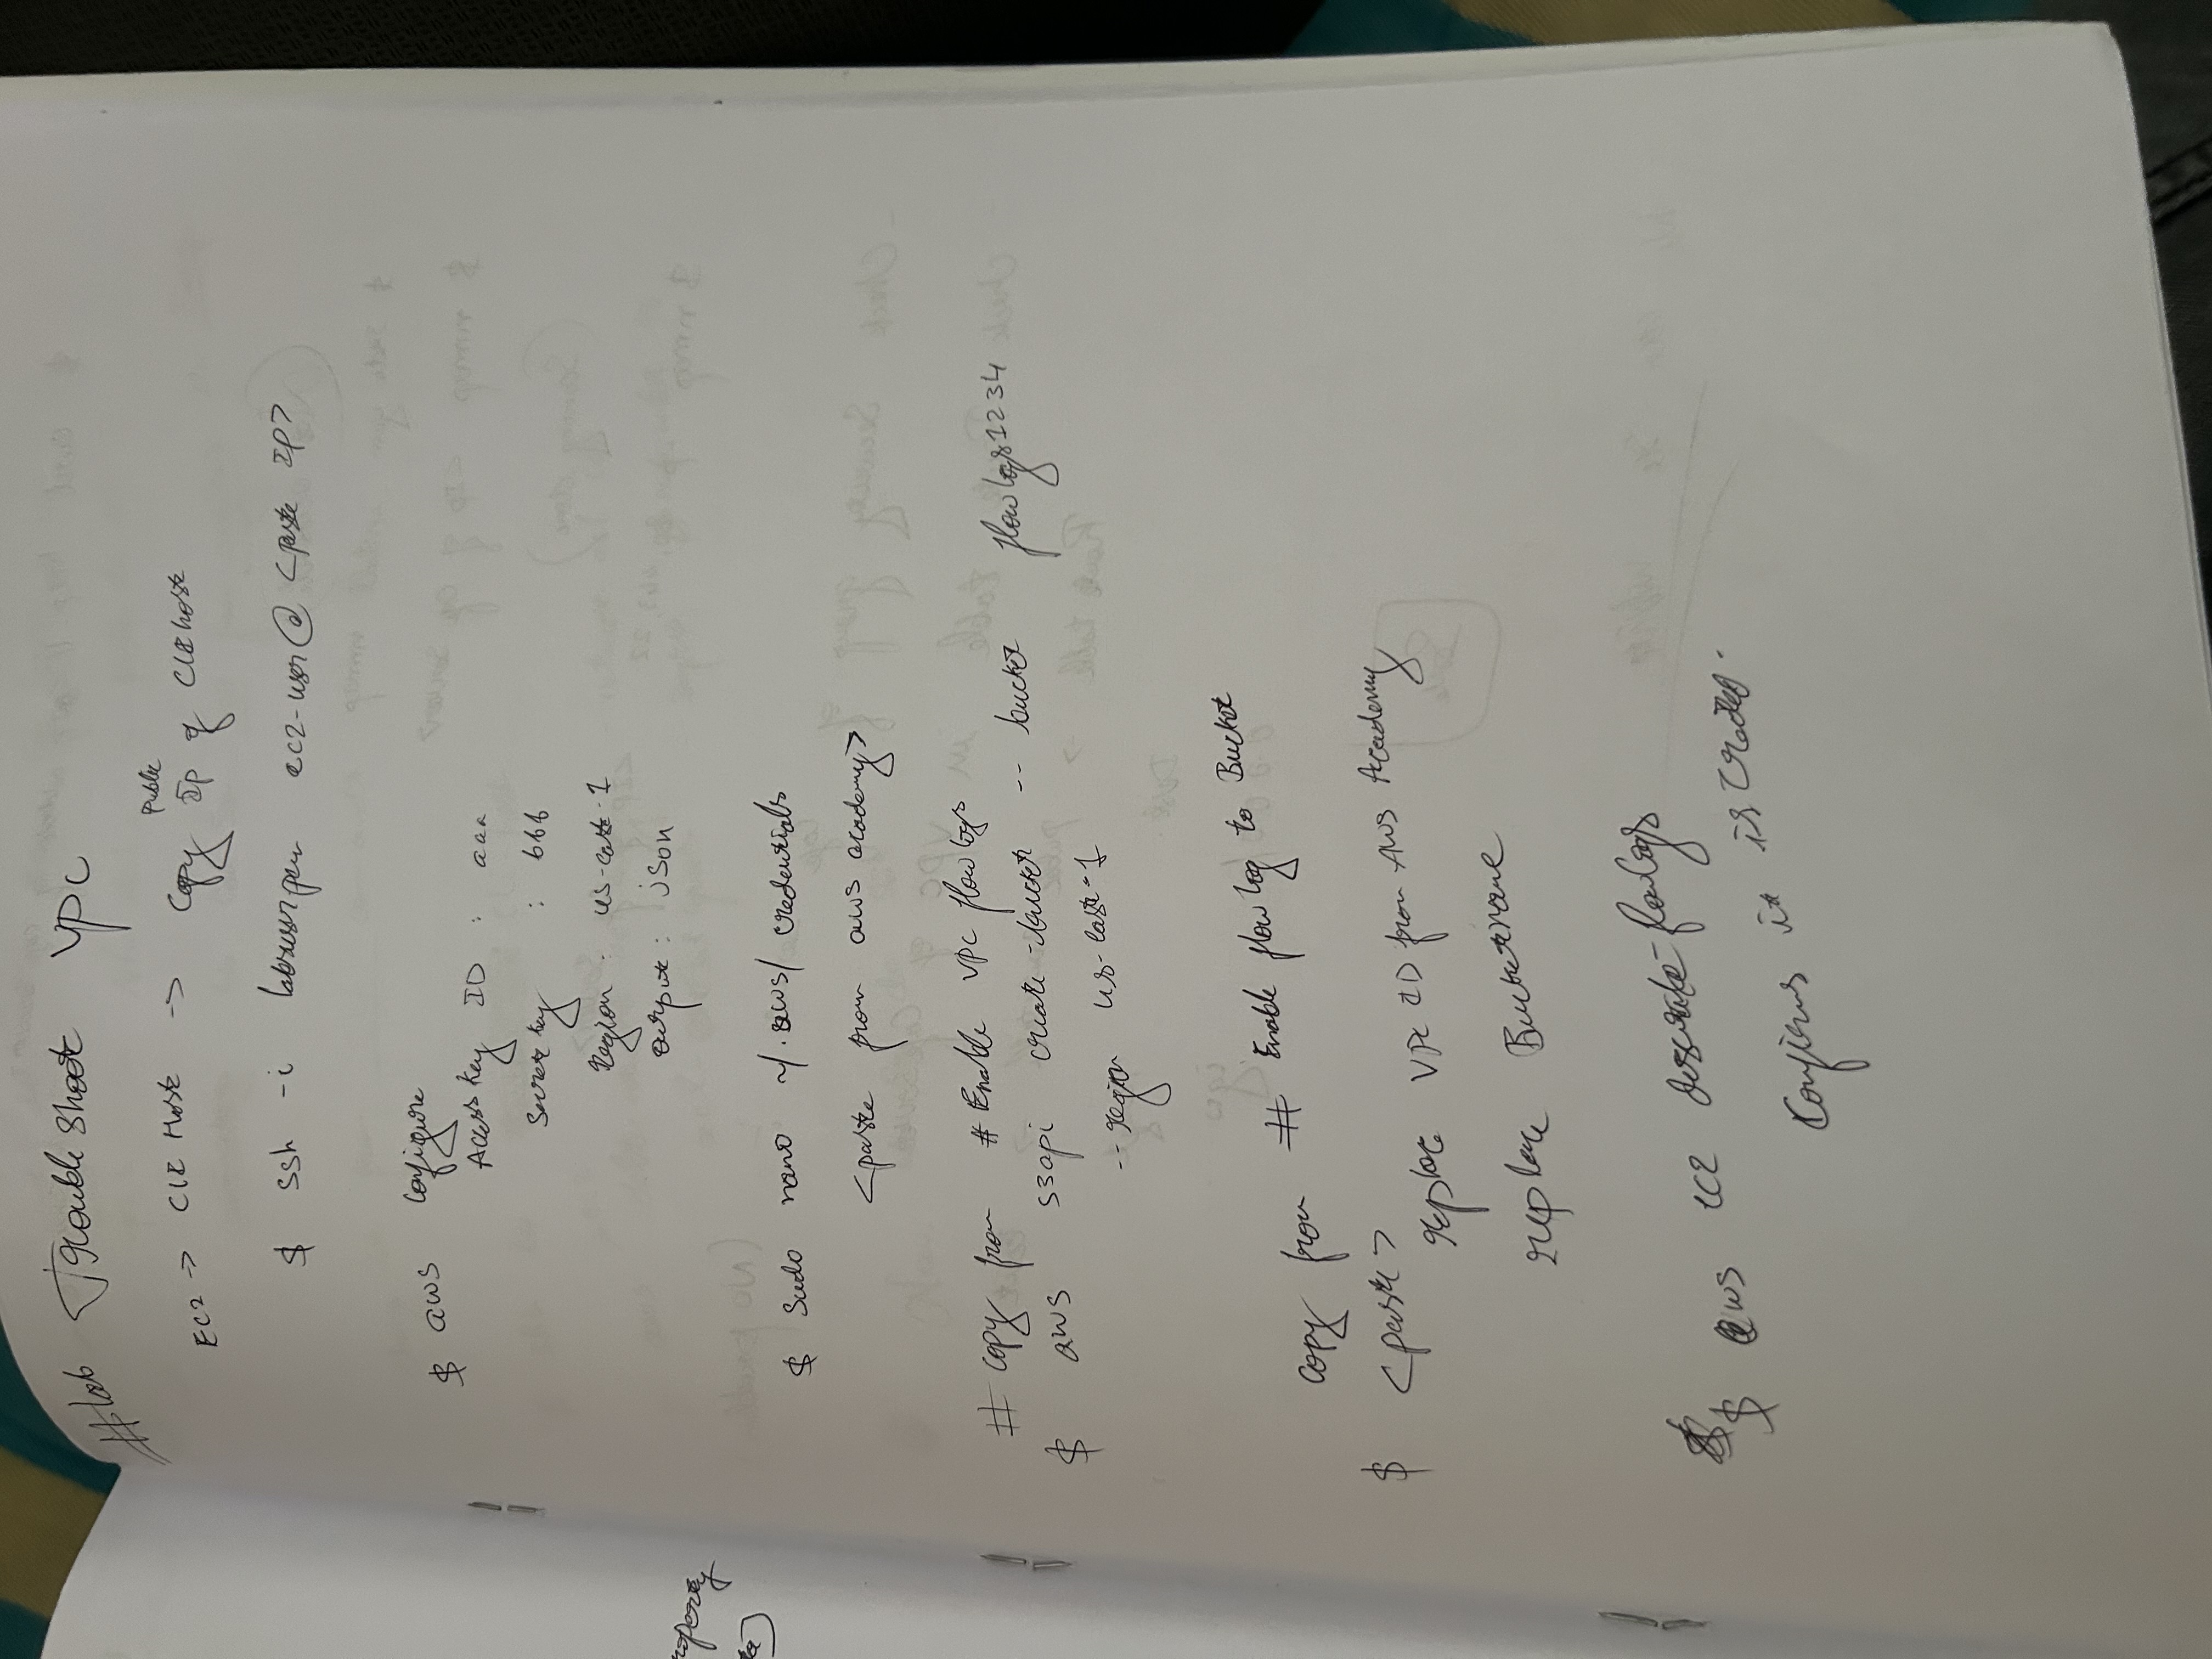 #lab Troubleshoot VPC
EC2 -> CLI Host -> Copy Public IP of CLI host
$ ssh -i labsuser.pem ec2-user@ <paste IP>
$ aws configure
Access key ID : aaa
Secret key : bbb
Region : us-east-1
output : json
$ sudo nano ~/.aws/credentials
<paste from aws academy>
# copy from # Enable VPC flow logs
$ aws s3api create-bucket -- bucket flowlogs1234
-- region us-east-1
copy from # Enable flow log to Bucket
$ <paste>
replace VPC ID from AWS Academy
replace Bucketname
$ aws ec2 describe-flowlogs
Confirms it is created.
roperty